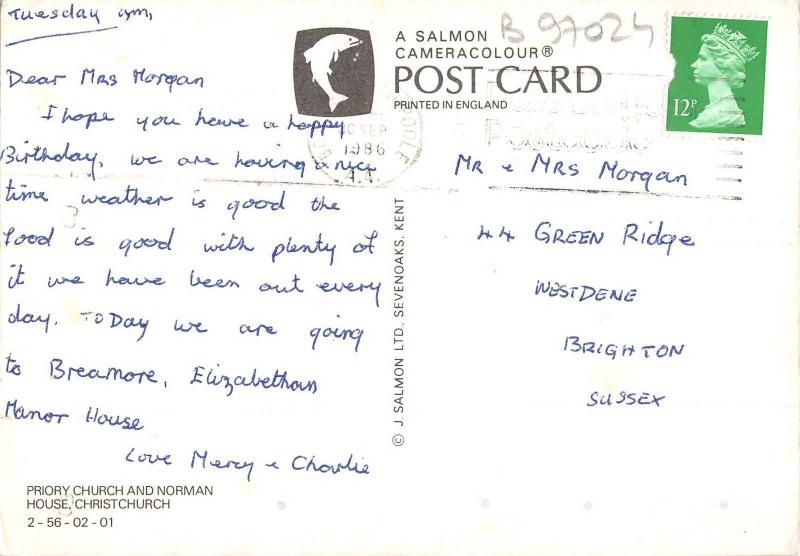 Tuesday am,
Dear Mrs Morgan
I hope you have a happy
Birthday, we are having a nice
time weather is good the
food is good with plenty of
it we have been out every
day. TODay we are going
to Breamore, Elizabethan
Manor House
Love Mercy & Charlie
PRIORY CHURCH AND NORMAN
HOUSE, CHRISTCHURCH
2-56-02-01
© J. SALMON LTD., SEVENOAKS, KENT
B 97024
A SALMON
CAMERACOLOUR®
POST CARD
PRINTED IN ENGLAND
SEP
1986
12P
MR & MRS Morgan
44 GREEN Ridge
WESTDENE
BRIGHTON
SUSSEX